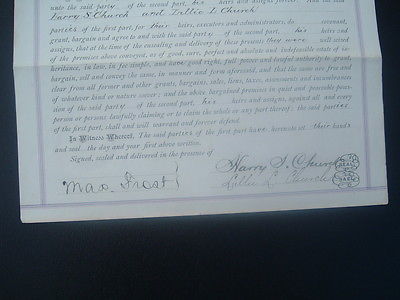 unto the said party of the second part, his heirs and assigns forever. And the said
Harry S Church and Lillie L Church
parties of the first part, for their heirs, executors and administrators, do covenant,
grant, bargain and agree to and with the said party of the second part, his heirs and
assigns, that at the time of the ensealing and delivery of these presents they were well seized
of the premises above conveyed, as of good, sure, perfect and absolute and indefeasible estate of in-
heritance, in law, in fee simple, and have good right, full power and lawful authority to grant,
bargain, sell and convey the same, in manner and form aforesaid, and that the same are free and
clear from all former and other grants, bargains, sales, liens, taxes, assessments and incumbrances
of whatever kind or nature soever; and the above bargained premises in quiet and peaceable posses-
sion of the said party of the second part, his heirs and assigns, against all and every
person or persons lawfully claiming or to claim the whole or any part thereof, the said parties
of the first part, shall and will warrant and forever defend.
In Witness Whereof, The said parties of the first part have hereunto set their hands
and seal the day and year first above written.
Signed, sealed and delivered in the presence of
Harry S. Church
SEAL
Max Frost
Lillie L. Church
SEAL